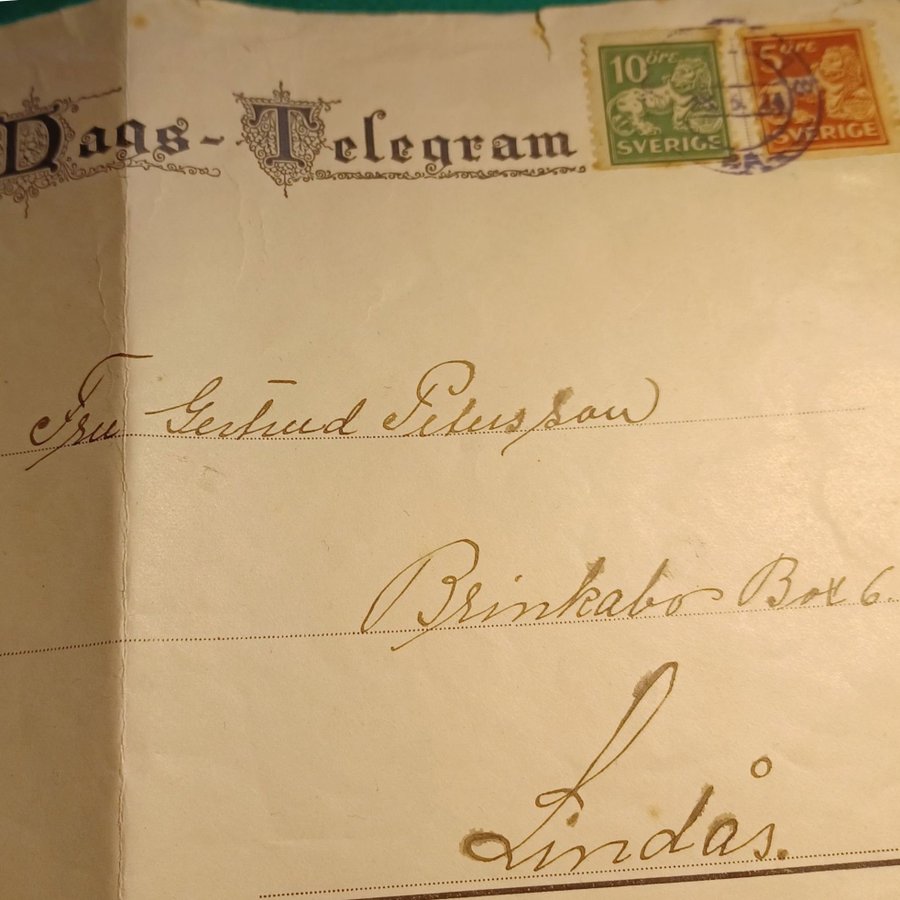 Dags-Telegram
10 öre
SVERIGE
5 öre
SVERIGE
Fru Gertrud Petersson
Brinkabo Box 6.
Lindås.